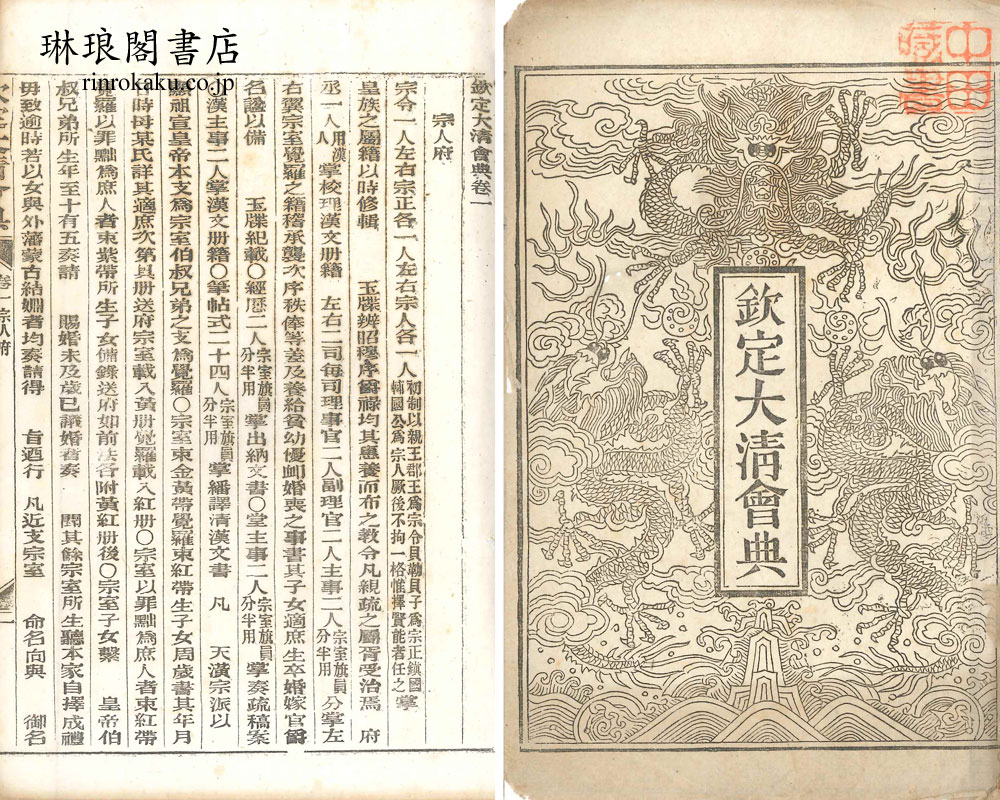 琳琅閣書店
rinrokaku.co.jp
欽定大清會典卷一
宗人府
宗令一人左右宗正各一人左右宗人各一人初制以親王郡王爲宗令貝勒貝子爲宗正鎭國輔國公爲宗人厥後不拘一格惟擇賢能者任之掌
皇族之屬籍以時修輯 玉牒辨昭穆序爵祿均其惠養而布之教令凡親疏之屬胥受治焉 府
丞一人用漢人掌校理漢文册籍 左右二司每司理事官二人副理官二人主事二人宗室旗員分半用分掌左
右翼宗室覺羅之籍稽承襲次序秩俸等差及養給貧幼優卹婚喪之事書其子女適庶生卒婚嫁官爵
名諡以備 玉牒紀載〇經歷二人宗室旗員分半用掌出納文書〇堂主事二人宗室旗員分半用掌奏疏稿案
漢主事二人掌漢文册籍〇筆帖式二十四人宗室旗員分半用掌繙譯清漢文書 凡 天潢宗派以
顯祖宣皇帝本支爲宗室伯叔兄弟之支爲覺羅〇宗室束金黃帶覺羅束紅帶生子女周歲書其年月
日時母某氏詳其適庶次第具册送府宗室載入黃册覺羅載入紅册〇宗室以罪黜爲庶人者束紅帶
覺羅以罪黜爲庶人者束紫帶所生子女備錄送府如前法各附黃紅册後〇宗室子女繫 皇帝伯
叔兄弟所生年至十有五奏請 賜婚未及歲已議婚者奏 聞其餘宗室所生聽本家自擇成禮
毋致逾時若以女與外藩蒙古結婣者均奏請得 旨迺行 凡近支宗室 命名向與 御名
卷一宗人府
中田藏書
欽定大清會典